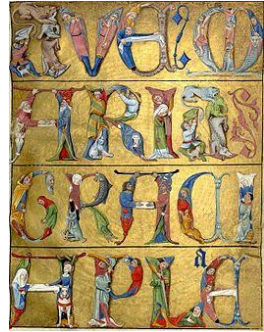 AVE: M
ARIA
GRACI
A PLEᵃ